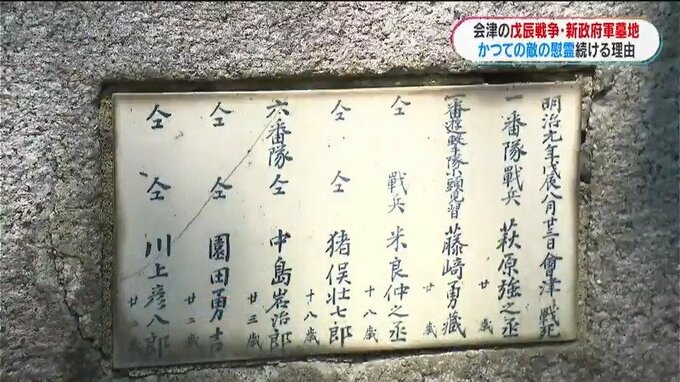 会津の戊辰戦争・新政府軍墓地
かつての敵の慰霊続ける理由
明治元年戊辰八月廿三日會津戦死
一番隊戰兵 萩原強之丞 廿歳
一番遊撃隊小頭見習 藤﨑勇藏 廿歳
仝 戰兵 米良仲之丞 十八歳
仝 仝 猪俣壮七郎 十八歳
六番隊 仝 中島岩治郎 廿三歳
仝 仝 園田勇吉 廿二歳
仝 仝 川上彦八郎 廿二歳